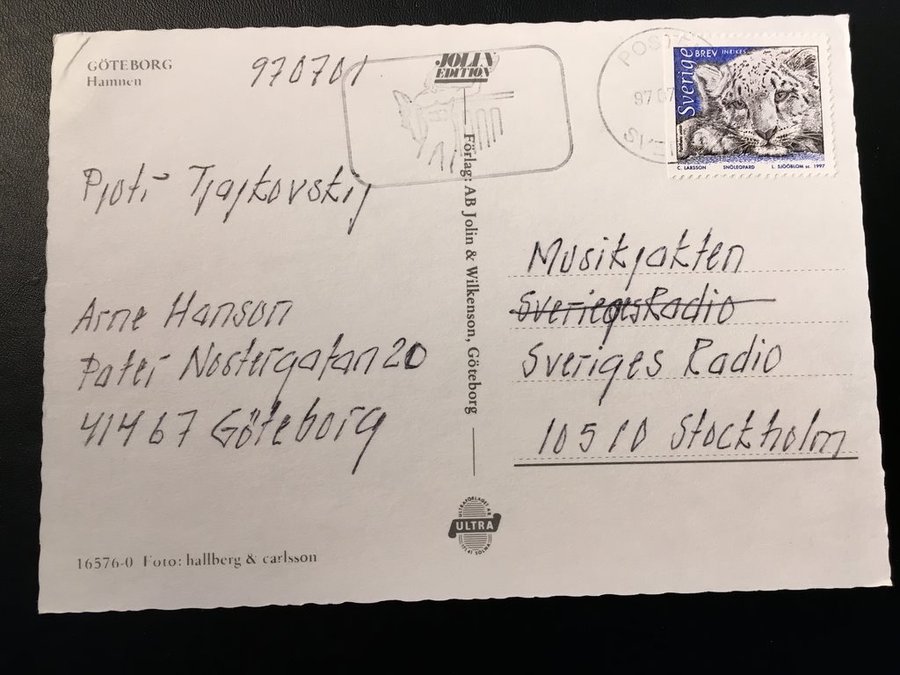 GÖTEBORG
Hamnen
970701
JOLIN
EDITION
Pjotr Tjajkovskij
Arne Hanson
Pater Nostergatan 20
41467 Göteborg
16576-0 Foto: hallberg & carlsson
Förlag: AB Jolin & Wilkenson, Göteborg
ULTRA
97 07
Sverige BREV INRIKES
C. LARSSON SNÖLEOPARD L. SJÖÖBLOM sc. 1997
Musikjakten
SveriegesRadio
Sveriges Radio
10510 Stockholm